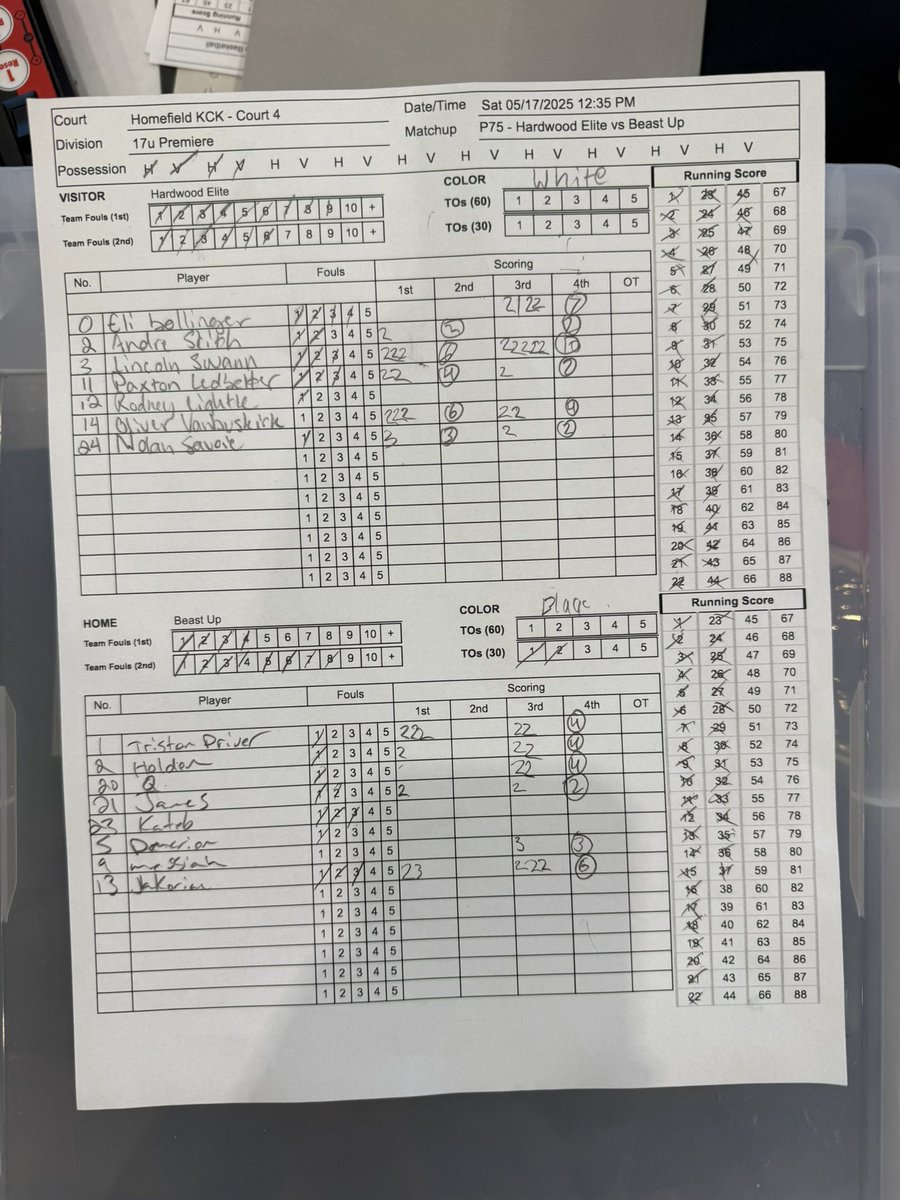 Running Score
H V
Court Homefield KCK - Court 4 Date/Time Sat 05/17/2025 12:35 PM
Division 17u Premiere Matchup P75 - Hardwood Elite vs Beast Up
Possession H V H V H V H V H V H V H V H V H V H V
VISITOR Hardwood Elite COLOR White Running Score
Team Fouls (1st) 1 2 3 4 5 6 7 8 9 10 + TOs (60) 1 2 3 4 5
Team Fouls (2nd) 1 2 3 4 5 6 7 8 9 10 + TOs (30) 1 2 3 4 5
No. Player Fouls Scoring
1st 2nd 3rd 4th OT
0 Eli bollinger 1 2 3 4 5 2 22 7
2 Andre Stith 1 2 3 4 5 2 2 2
3 Lincoln Swann 1 2 3 4 5 222 6 22222
11 Paxton Ledbetter 1 2 3 4 5 22 4 2 2
12 Rodney Lightle 1 2 3 4 5
14 Oliver Vanbuskirk 1 2 3 4 5 222 6 22 4
24 Nolan Savoie 1 2 3 4 5 3 3 2 2
1 2 3 4 5
1 2 3 4 5
1 2 3 4 5
1 2 3 4 5
1 2 3 4 5
1 2 3 4 5
1 2 3 4 5
1 23 45 67
2 24 46 68
3 25 47 69
4 26 48 70
5 27 49 71
6 28 50 72
7 29 51 73
8 30 52 74
9 31 53 75
10 32 54 76
11 33 55 77
12 34 56 78
13 35 57 79
14 36 58 80
15 37 59 81
16 38 60 82
17 39 61 83
18 40 62 84
19 41 63 85
20 42 64 86
21 43 65 87
22 44 66 88
HOME Beast Up COLOR Running Score
Team Fouls (1st) 1 2 3 4 5 6 7 8 9 10 + TOs (60) 1 2 3 4 5
Team Fouls (2nd) 1 2 3 4 5 6 7 8 9 10 + TOs (30) 1 2 3 4 5
No. Player Fouls Scoring
1st 2nd 3rd 4th OT
1 Tristan Driver 1 2 3 4 5 222 22 4
2 Holden 1 2 3 4 5 2 22 4
20 Q 1 2 3 4 5 22 4
21 James 1 2 3 4 5 2 2 2
23 Kateb 1 2 3 4 5
5 Domerion 1 2 3 4 5
9 messiah 1 2 3 4 5 3 3
13 Jakorian 1 2 3 4 5 23 222 6
1 2 3 4 5
1 2 3 4 5
1 2 3 4 5
1 2 3 4 5
1 2 3 4 5
1 2 3 4 5
1 23 45 67
2 24 46 68
3 25 47 69
4 26 48 70
5 27 49 71
6 28 50 72
7 29 51 73
8 30 52 74
9 31 53 75
10 32 54 76
11 33 55 77
12 34 56 78
13 35 57 79
14 36 58 80
15 37 59 81
16 38 60 82
17 39 61 83
18 40 62 84
19 41 63 85
20 42 64 86
21 43 65 87
22 44 66 88